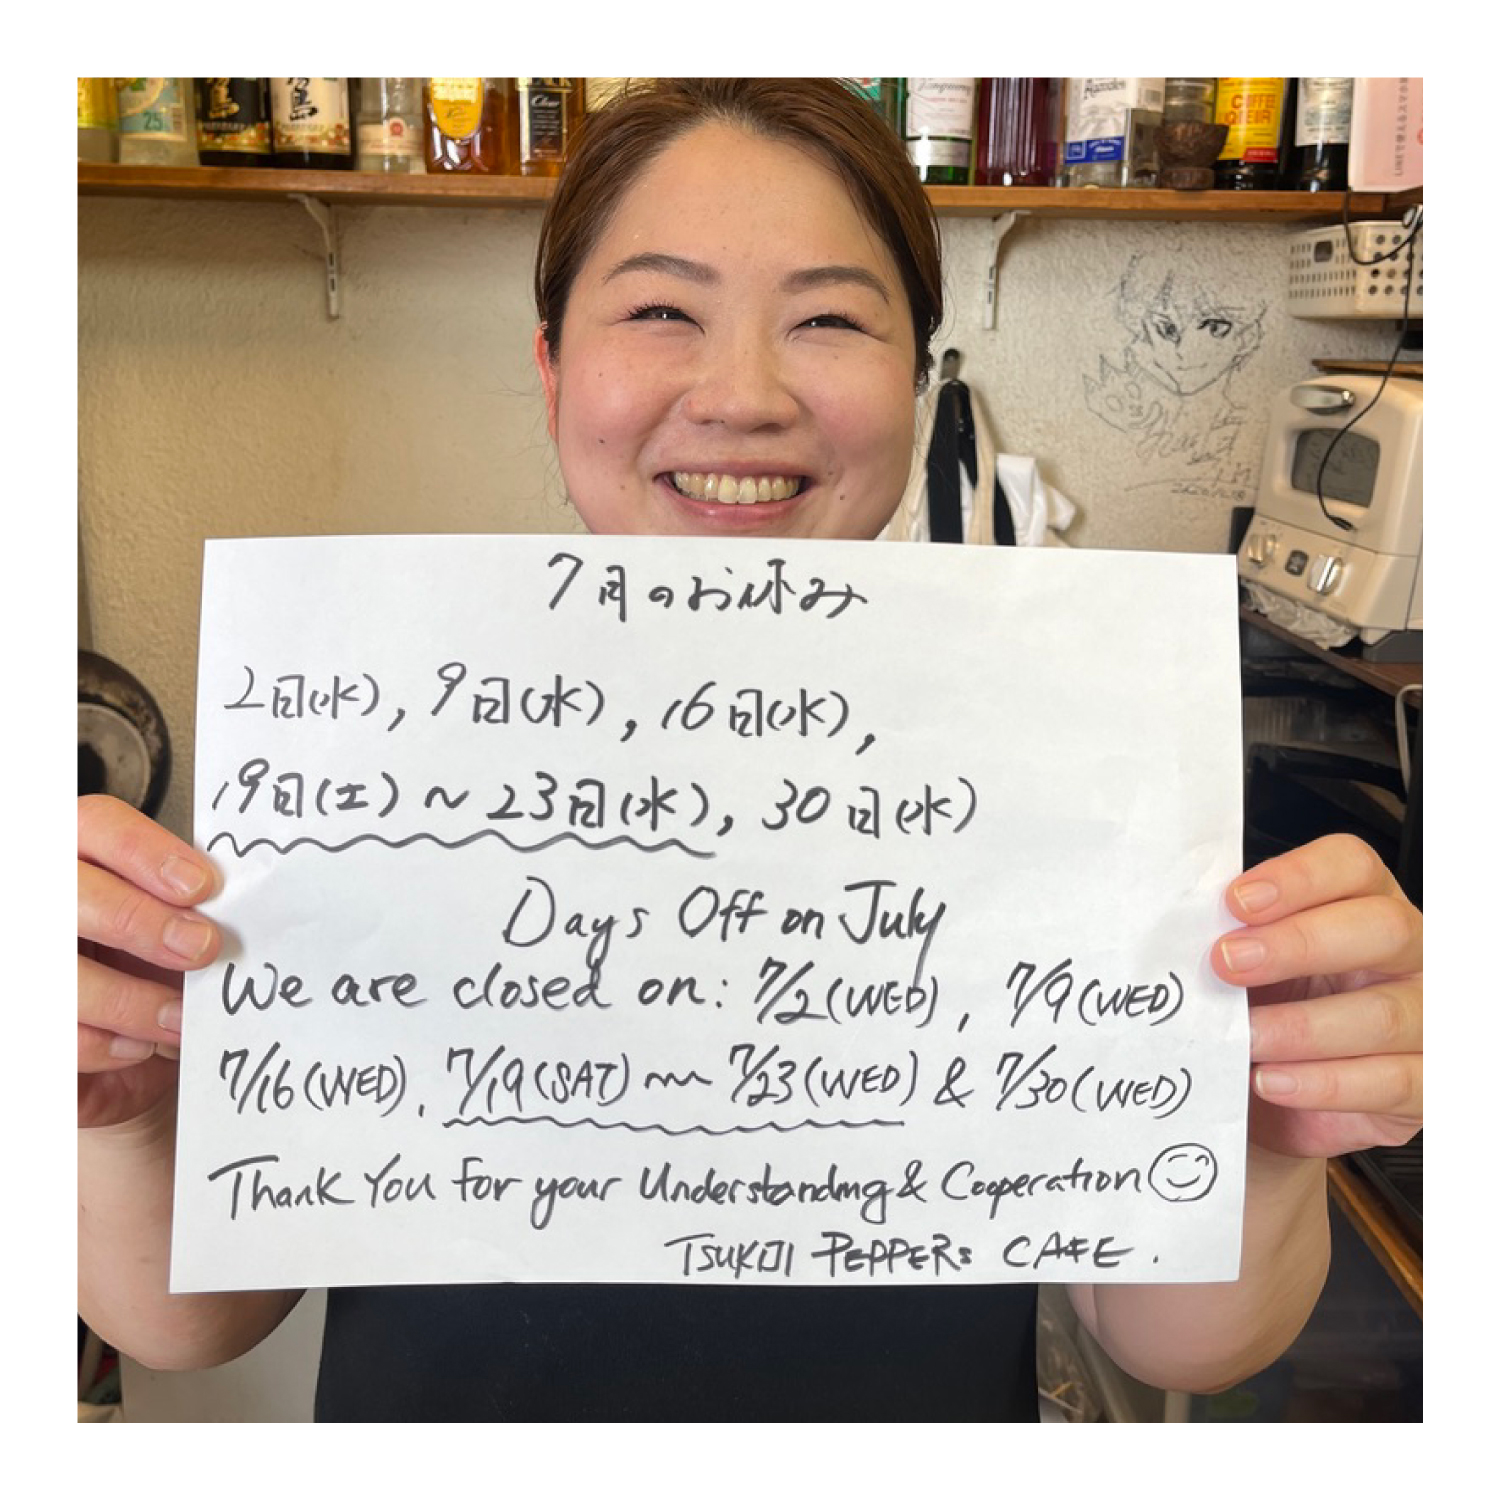 25
Tanqueray
LINEで使えるスマホ
7月のお休み
2日(水), 9日(水), 16日(水),
19日(土) ~ 23日(水), 30日(水)
Days Off on July
We are closed on: 7/2(WED), 7/9(WED)
7/16(WED). 7/19(SAT) ~ 7/23(WED) & 7/30(WED)
Thank You for your Understanding & Cooperation
TSUKIJI PEPPERs CAFE.